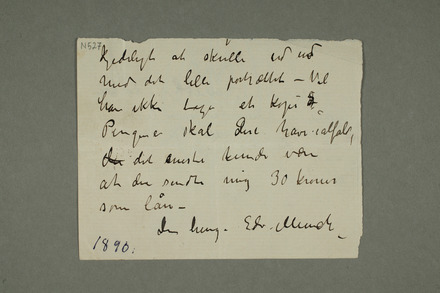 N527
kjedeligt at skulle ud
med det lille portrættet – Vil
han ikke tage et kopi
Pengene skal Dere have ialfald,
det eneste kunde være
at du sendte mig 30 kroner
som lån –
Din heng. Edv. Munch
1890.